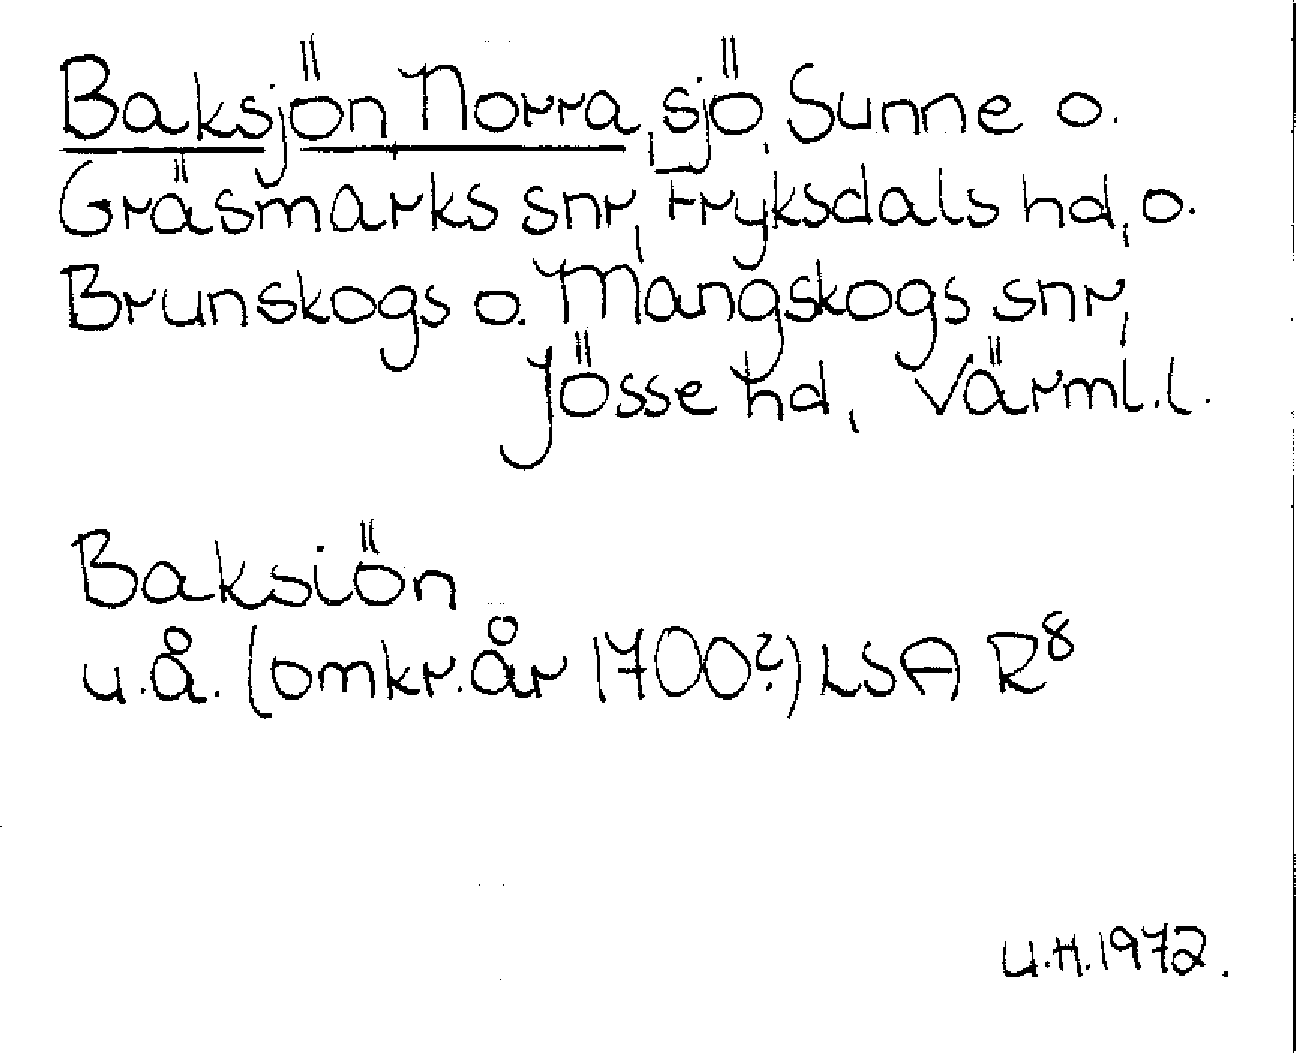 Baksjön Norra, sjö, Sunne o.
Gräsmarks snr, Fryksdals hd, o.
Brunskogs o. Mangskogs snr,
Jösse hd, Värml.l.
Baksiön
u.å. (omkr. år 1700?) LSA R⁸
U.H. 1972.